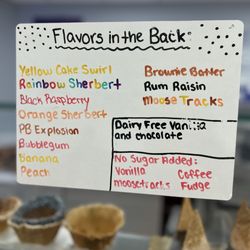 Flavors in the Back
Yellow Cake Swirl
Rainbow Sherbert
Black Raspberry
Orange Sherbert
PB Explosion
Bubblegum
Banana
Peach
Brownie Batter
Rum Raisin
Moose Tracks
Dairy Free Vanilla
and chocolate
No Sugar Added:
Vanilla Coffee
moosetracks Fudge